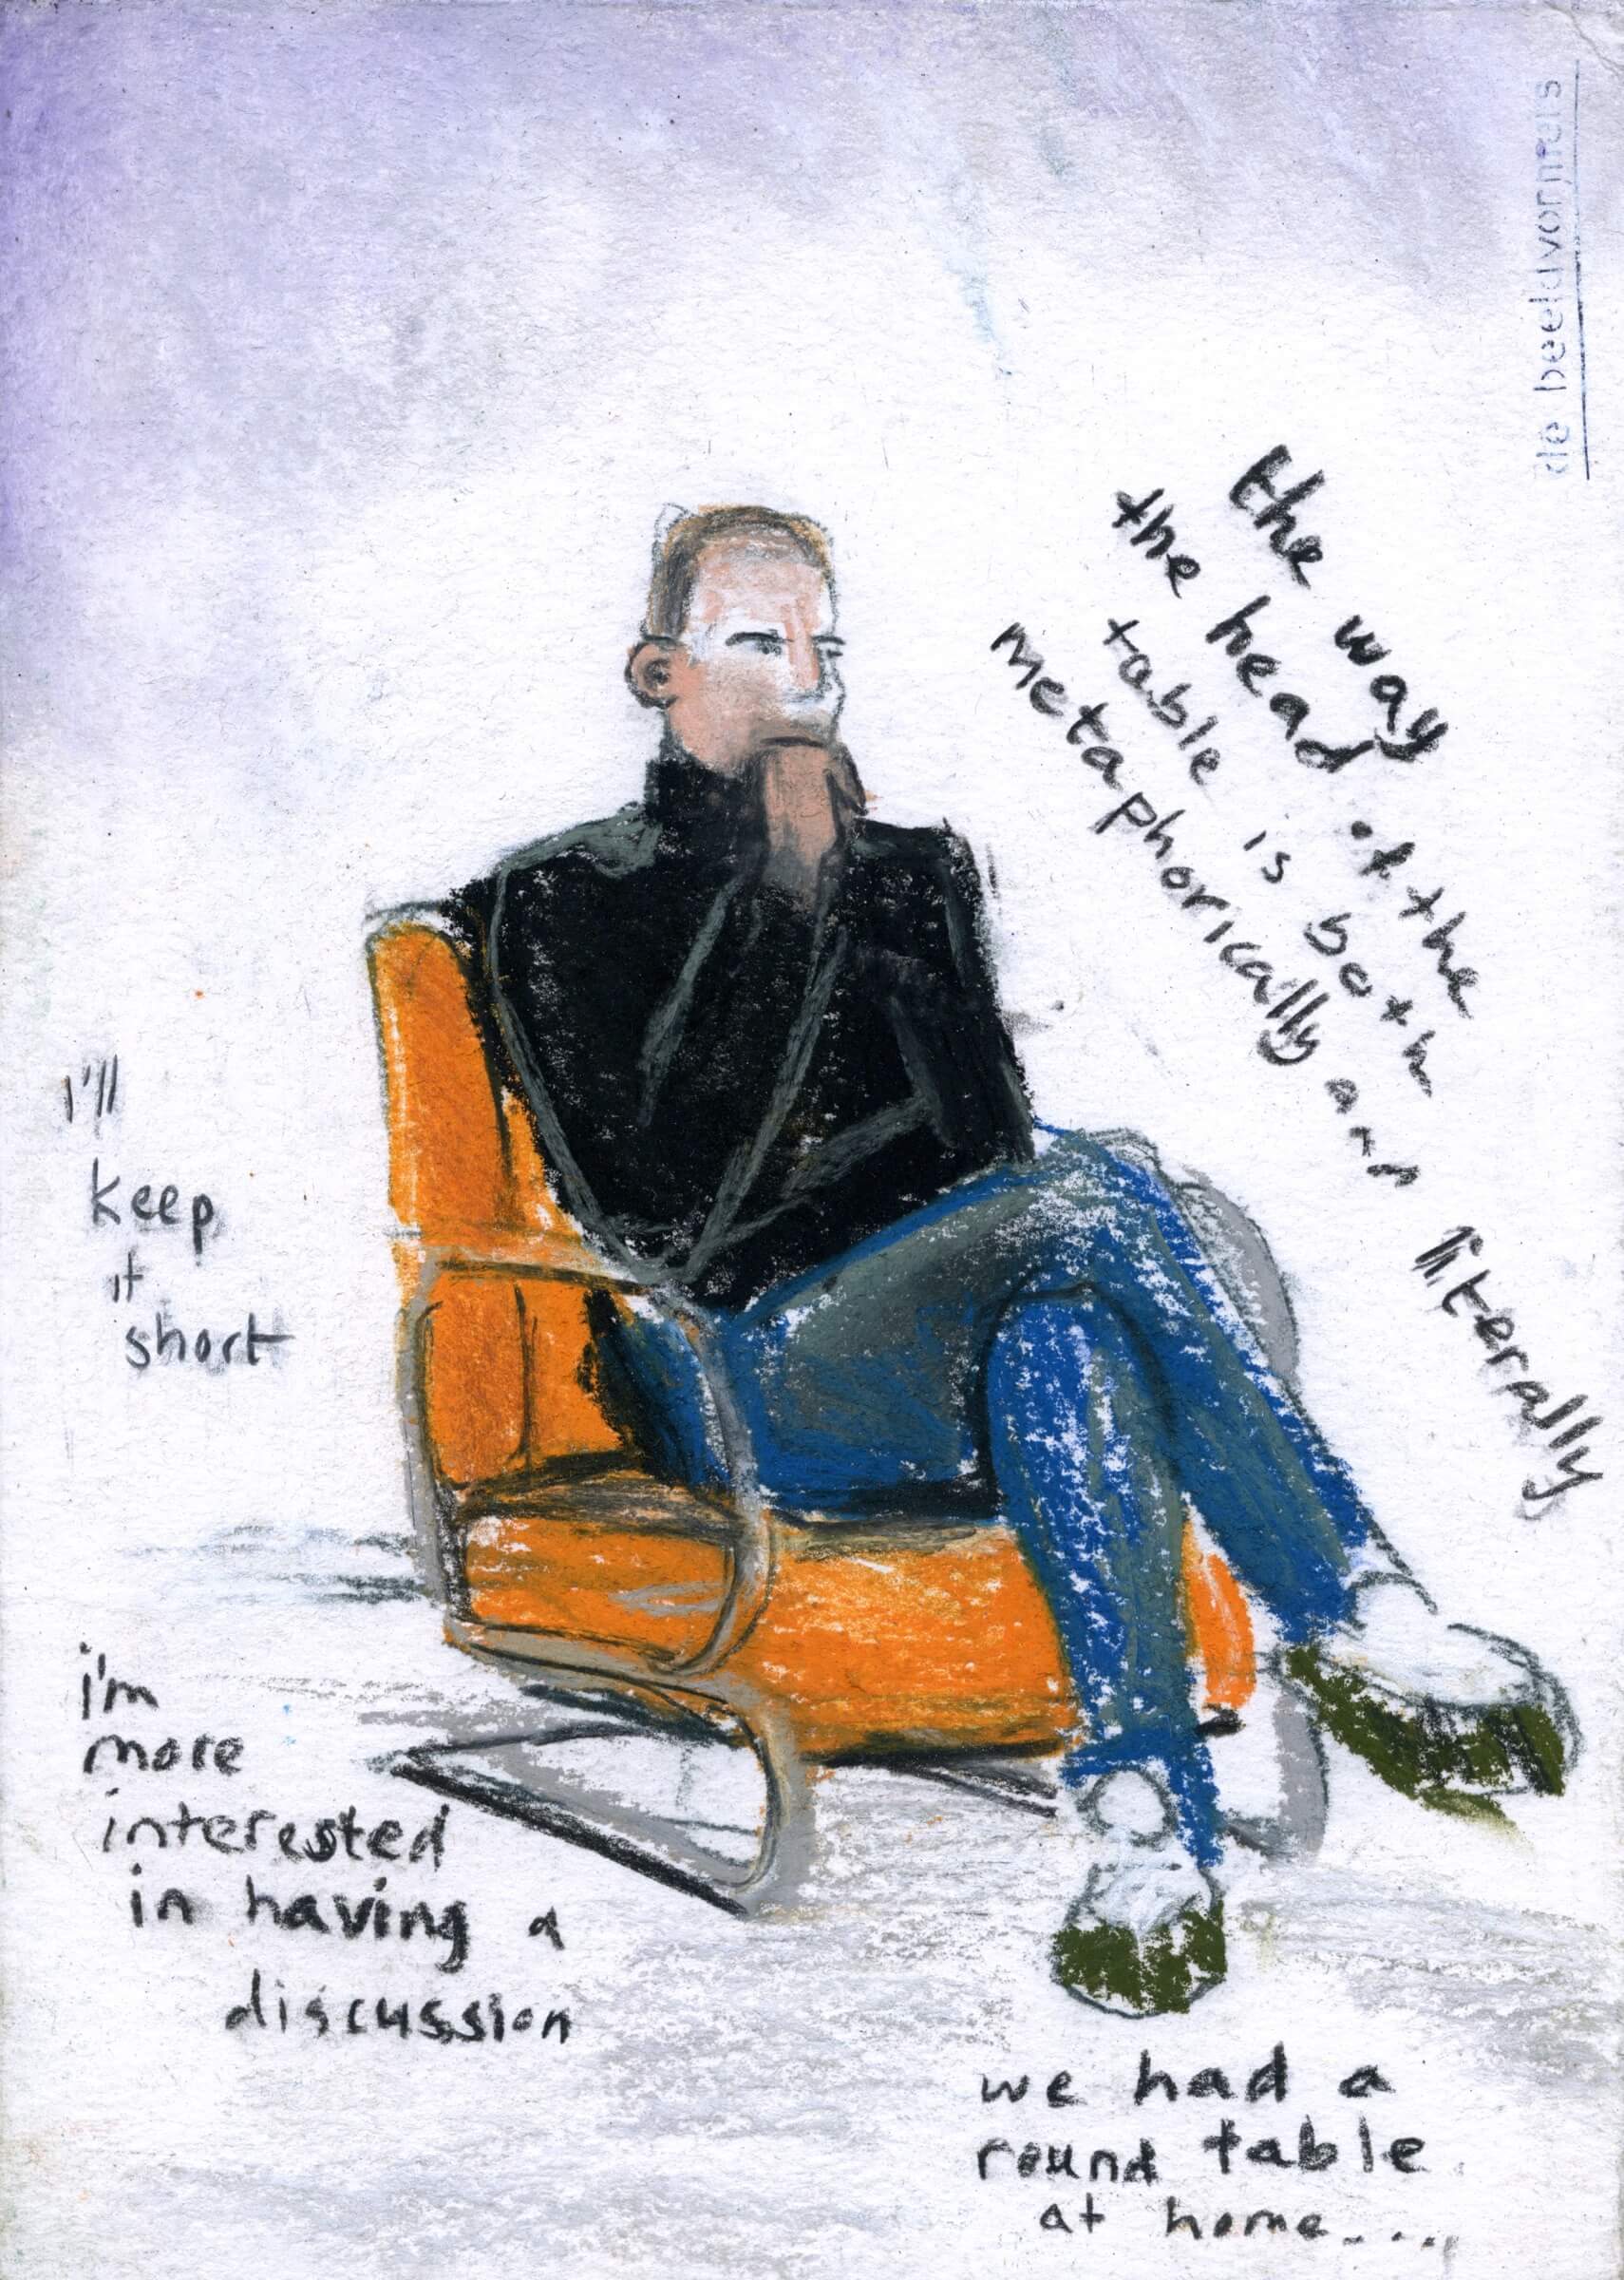 de beeldvormers
the way
the head of the
table is both
metaphorically and literally
i'll
keep
it
short
i'm
more
interested
in having a
discussion
we had a
round table
at home....